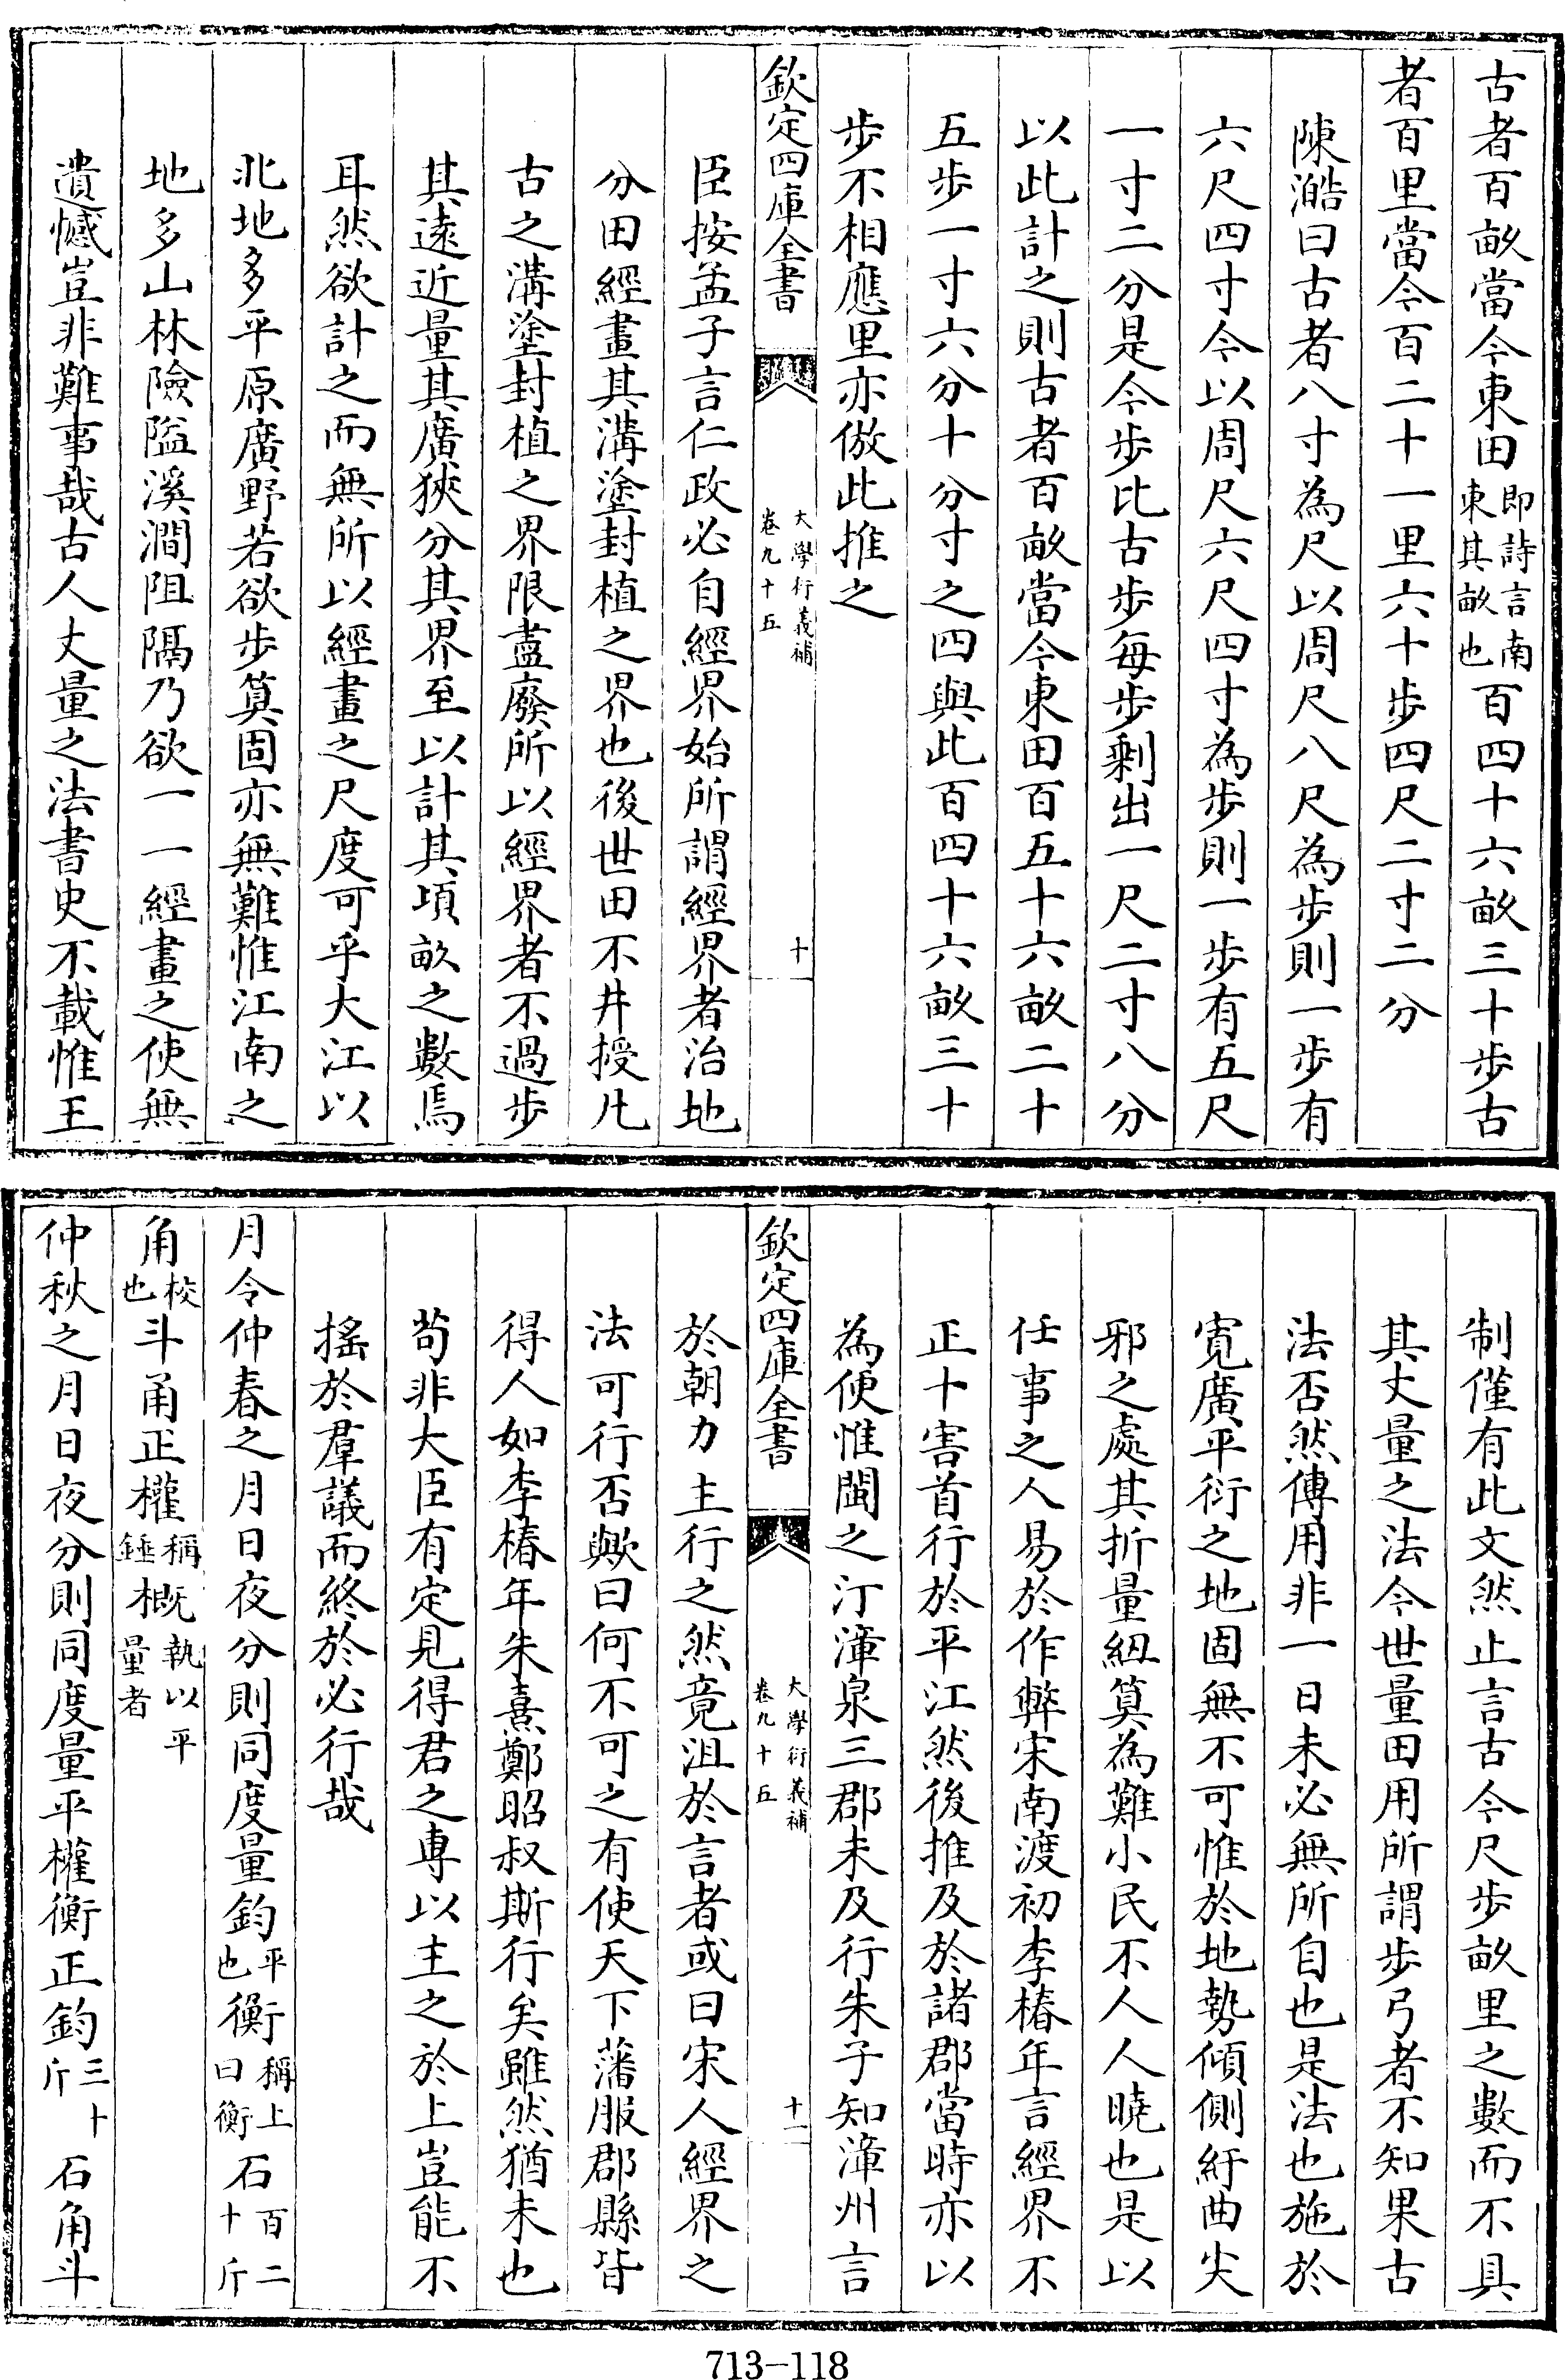 古者百畝當今東田即詩言南東其畝也百四十六畝三十步古
者百里當今百二十一里六十步四尺二寸二分
陳澔曰古者八寸為尺以周尺八尺為步則一步有
六尺四寸今以周尺六尺四寸為步則一步有五尺
一寸二分是今步比古步每步剩出一尺二寸八分
以此計之則古者百畝當今東田百五十六畝二十
五步一寸六分十分寸之四與此百四十六畝三十
步不相應里亦倣此推之
欽定四庫全書
大學衍義補
卷九十五
十
臣按孟子言仁政必自經界始所謂經界者治地
分田經畫其溝塗封植之界也後世田不井授凡
古之溝塗封植之界限盡廢所以經界者不過步
其遠近量其廣狹分其界至以計其頃畝之數焉
耳然欲計之而無所以經畫之尺度可乎大江以
北地多平原廣野若欲步算固亦無難惟江南之
地多山林險隘溪澗阻隔乃欲一一經畫之使無
遺憾豈非難事哉古人丈量之法書史不載惟王
制僅有此文然止言古今尺步畝里之數而不具
其丈量之法今世量田用所謂步弓者不知果古
法否然傳用非一日未必無所自也是法也施於
寛廣平衍之地固無不可惟於地勢傾側紆曲尖
邪之處其折量紐算為難小民不人人曉也是以
任事之人易於作弊宋南渡初李椿年言經界不
正十害首行於平江然後推及於諸郡當時亦以
為便惟閩之汀漳泉三郡未及行朱子知漳州言
欽定四庫全書
大學衍義補
卷九十五
十一
於朝力主行之然竟沮於言者或曰宋人經界之
法可行否歟曰何不可之有使天下藩服郡縣皆
得人如李椿年朱熹鄭昭叔斯行矣雖然猶未也
苟非大臣有定見得君之專以主之於上豈能不
搖於羣議而終於必行哉
月令仲春之月日夜分則同度量鈞平也衡稱上曰衡石百二十斤
角校也斗甬正權稱錘概執以平量者
仲秋之月日夜分則同度量平權衡正鈞三十斤石角斗
713-118